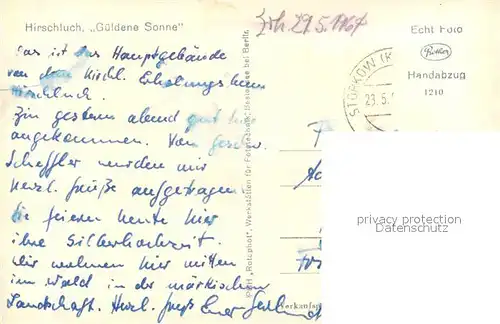 Hirschluch, „Güldene Sonne"
Erh. 29.5.1967
Echt Foto
Handabzug
1210
STORKOW (K
23.5.
Das ist das Hauptgebäude
von dem Kirchl. Erholungsheim
Hirschluch.
Bin gestern abend gut hier
angekommen. Von
Scheffler wurden mir
herzl. Grüße aufgetragen
Sie feiern heute hier
ihre Silberhochzeit.
Wir wohnen hier mitten
im Wald in der märkischen
Landschaft. Herzl. Grüße Euer
"Rotophot", Werkstätten für Fototechnik, Bestensee bei Berlin
Verkaufsp
privacy protection
AnsichtskartenVersand